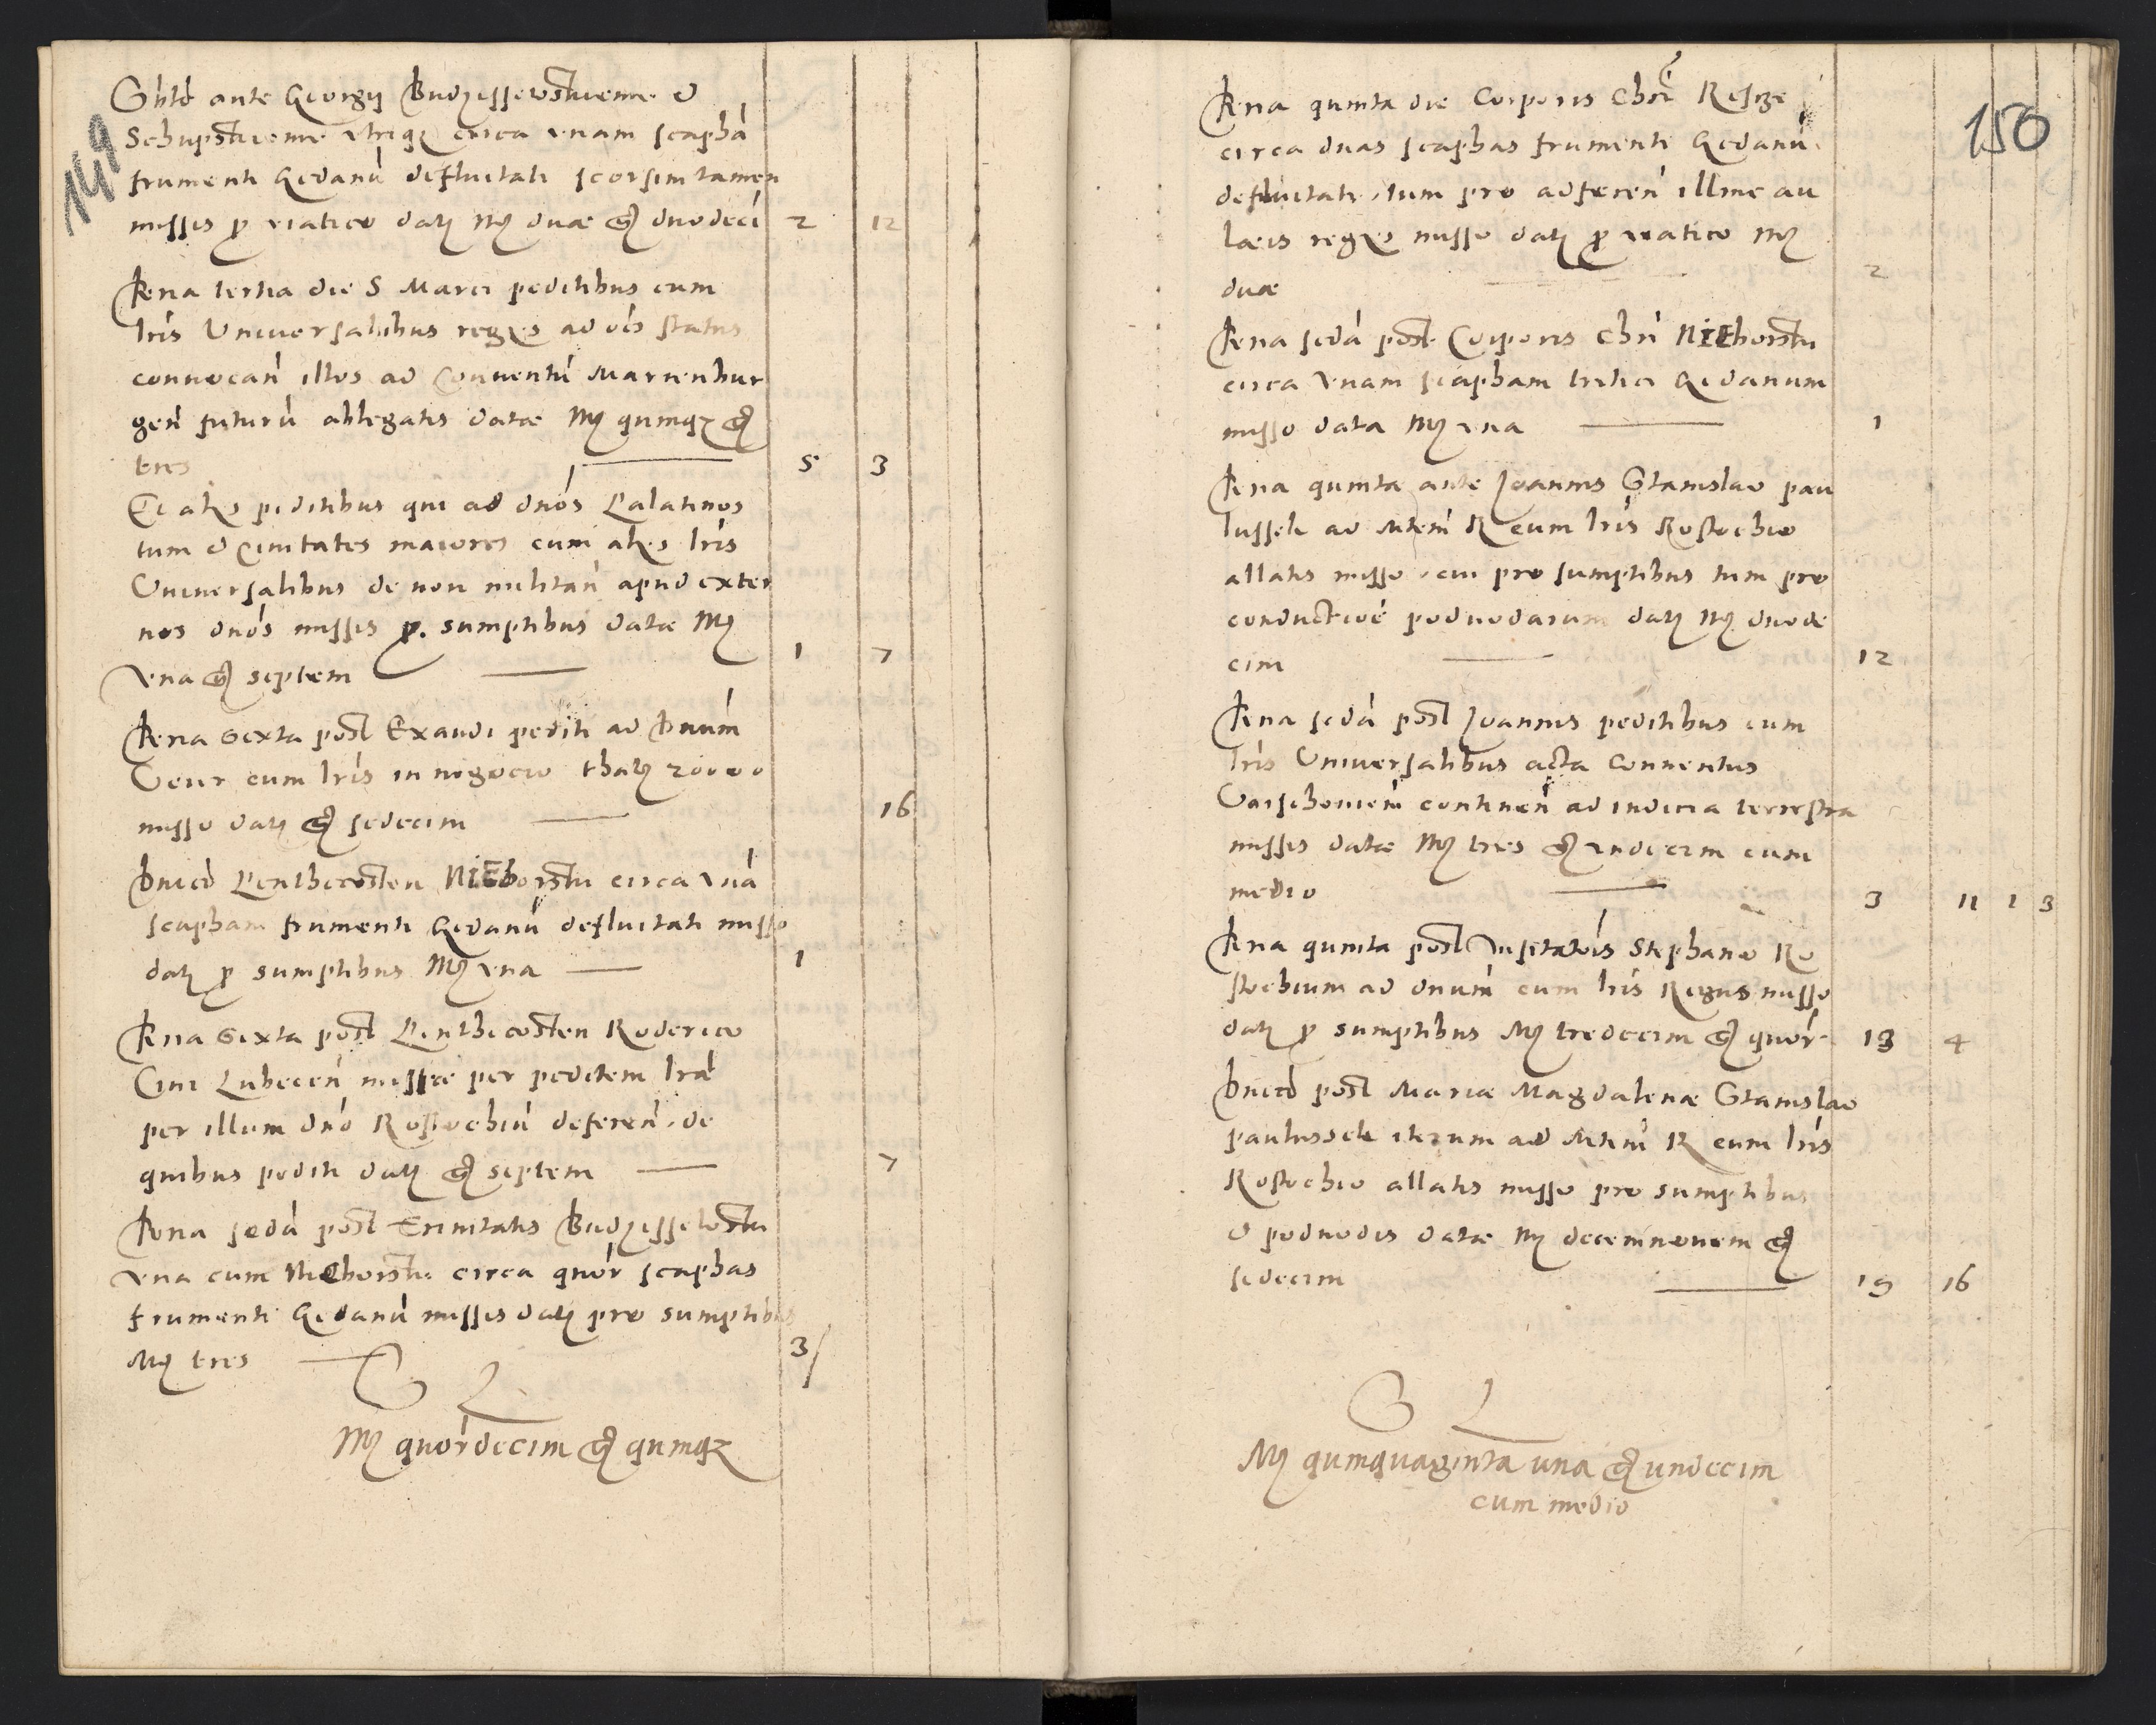 149
Sbto ante Georgij Budzissewskiemu &
Schupskiemu vtriqz circa vnam scaphā
frumenti Gedanū defluitati seorsim tamen
missis p viatico datę Mẹ duae gẹ duodeci 2 12
Feria tertia die S Marci peditibus cum
lris Vniuersalibus regẹs ad oēs status
conuocań illos ad Conuentū Marienbur
geń futurū ablegatis datae Mẹ quinqz gẹ
tres 5 3
Et alẹs peditibus qui ad dnos Palatinos
tum & ciuitates maiores cum alẹs lris
Vniuersalibus de non militań apud exter
nos dnos missis p. sumptibus datae Mẹ
vna gẹ septem 1 7
Feria sexta post Exaudi pediti ad Dnum
Veur cum lris in negocio thalẹ 20000
misso datẹ gẹ sedecim 16
Dnico Penthecosten NIEborski circa vnā
scapham frumenti Gedanū defluitati misso
datẹ p sumptibus Mẹ vna 1
Feria sexta post Penthecosten Roderico
Ciui Lubeceń missae per peditem lrae
per illum dno Rostochiū defereń. de
quibus pediti datẹ gẹ septem 7
Feria scdā post Trinitatis Budzissewski
vna cum Nieborski circa quor scaphas
frumenti Gedanū missis datẹ pro sumptibus
Mẹ tres 3
Mẹ quordecim gẹ quinqz
150
Feria quinta die Corporis Chri Resze
circa duas scaphas frumenti Gedanū
defluitati, tum pro adfereń illine au
laeis regẹs misso datẹ p viatico Mẹ
duae 2
Feria scdā post Corporis Chri NIEborski
circa vnam scapham tritici Gedanum
misso data Mẹ vna 1
Feria quinta ante Joannis Stanislao pau
lusseck ad Mtem R cum lris Rostochio
allatis misso, cui pro sumptibus tum pro
conductioē poduodarum datẹ Mẹ duode
cim 12
Feria scdā post Joannis peditibus cum
lris Vniuersalibus acta Conuentus
Varschouień contineń ad iudicia terrestria
missis datae Mẹ tres gẹ vndecim cum
medio 3 11 1 3
Feria quinta post Visitatois Stephano Ro
stochium ad dnum cum lris Regiis misso
datẹ p sumptibus Mẹ tredecim gẹ quor 13 4
Dnico post Mariae Magdalenae Stanislao
paulusseck iterum ad Mtem R cum lris
Rostochio allatis misso pro sumptibus
& poduodis datae Mẹ decemnouem gẹ
sedecim 19 16
Mẹ quinquaginta una gẹ undecim
cum medio